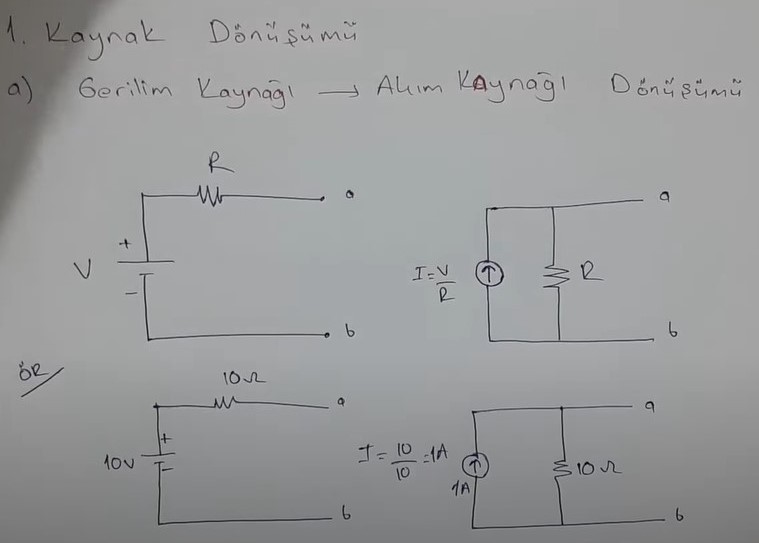 1. Kaynak Dönüşümü
a) Gerilim Kaynağı → Akım Kaynağı Dönüşümü
R
a
+
V
-
b
a
I=V/R
R
b
ÖR
10Ω
a
+
10V
-
b
a
I=10/10=1A
1A
10Ω
b